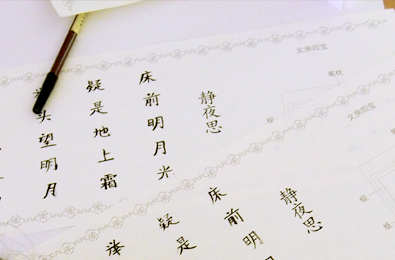 文房四宝
静夜思
床前明月光
疑是地上霜
举头望明月
文房四宝
静夜思
床前明
疑是
举